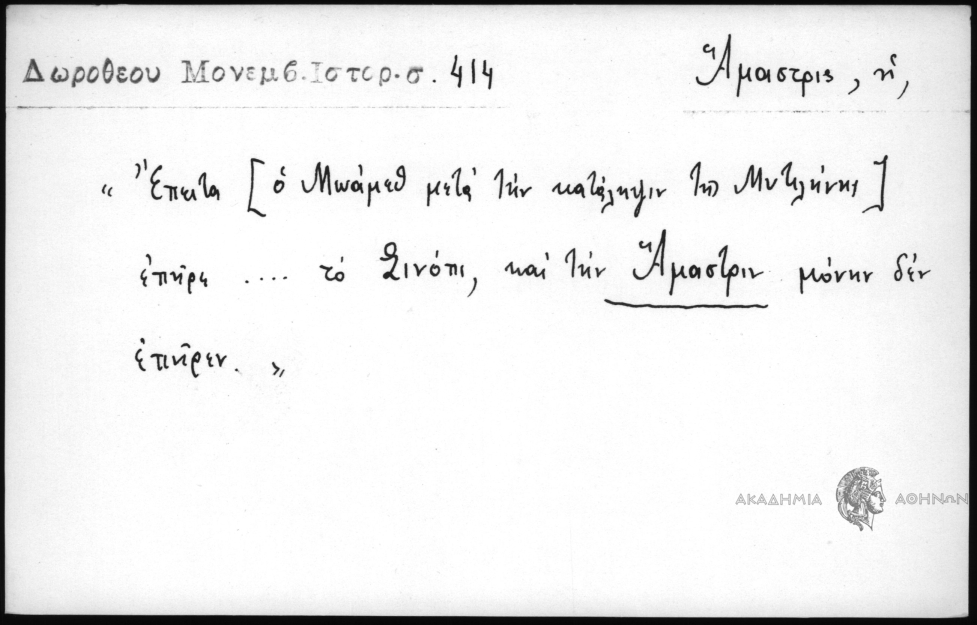 Δωροθεου Μονεμβ.Ιστορ.σ. 414
Ἄμαστρις, ἡ,
« Ἔπειτα [ὁ Μωάμεθ μετὰ τὴν κατάληψιν τῆς Μυτιλήνης]
ἐπῆρε .... τὸ Σινόπι, καὶ τὴν Ἄμαστριν μόνην δὲν
ἐπῆρεν. »
ΑΚΑΔΗΜΙΑ ΑΘΗΝΩΝ